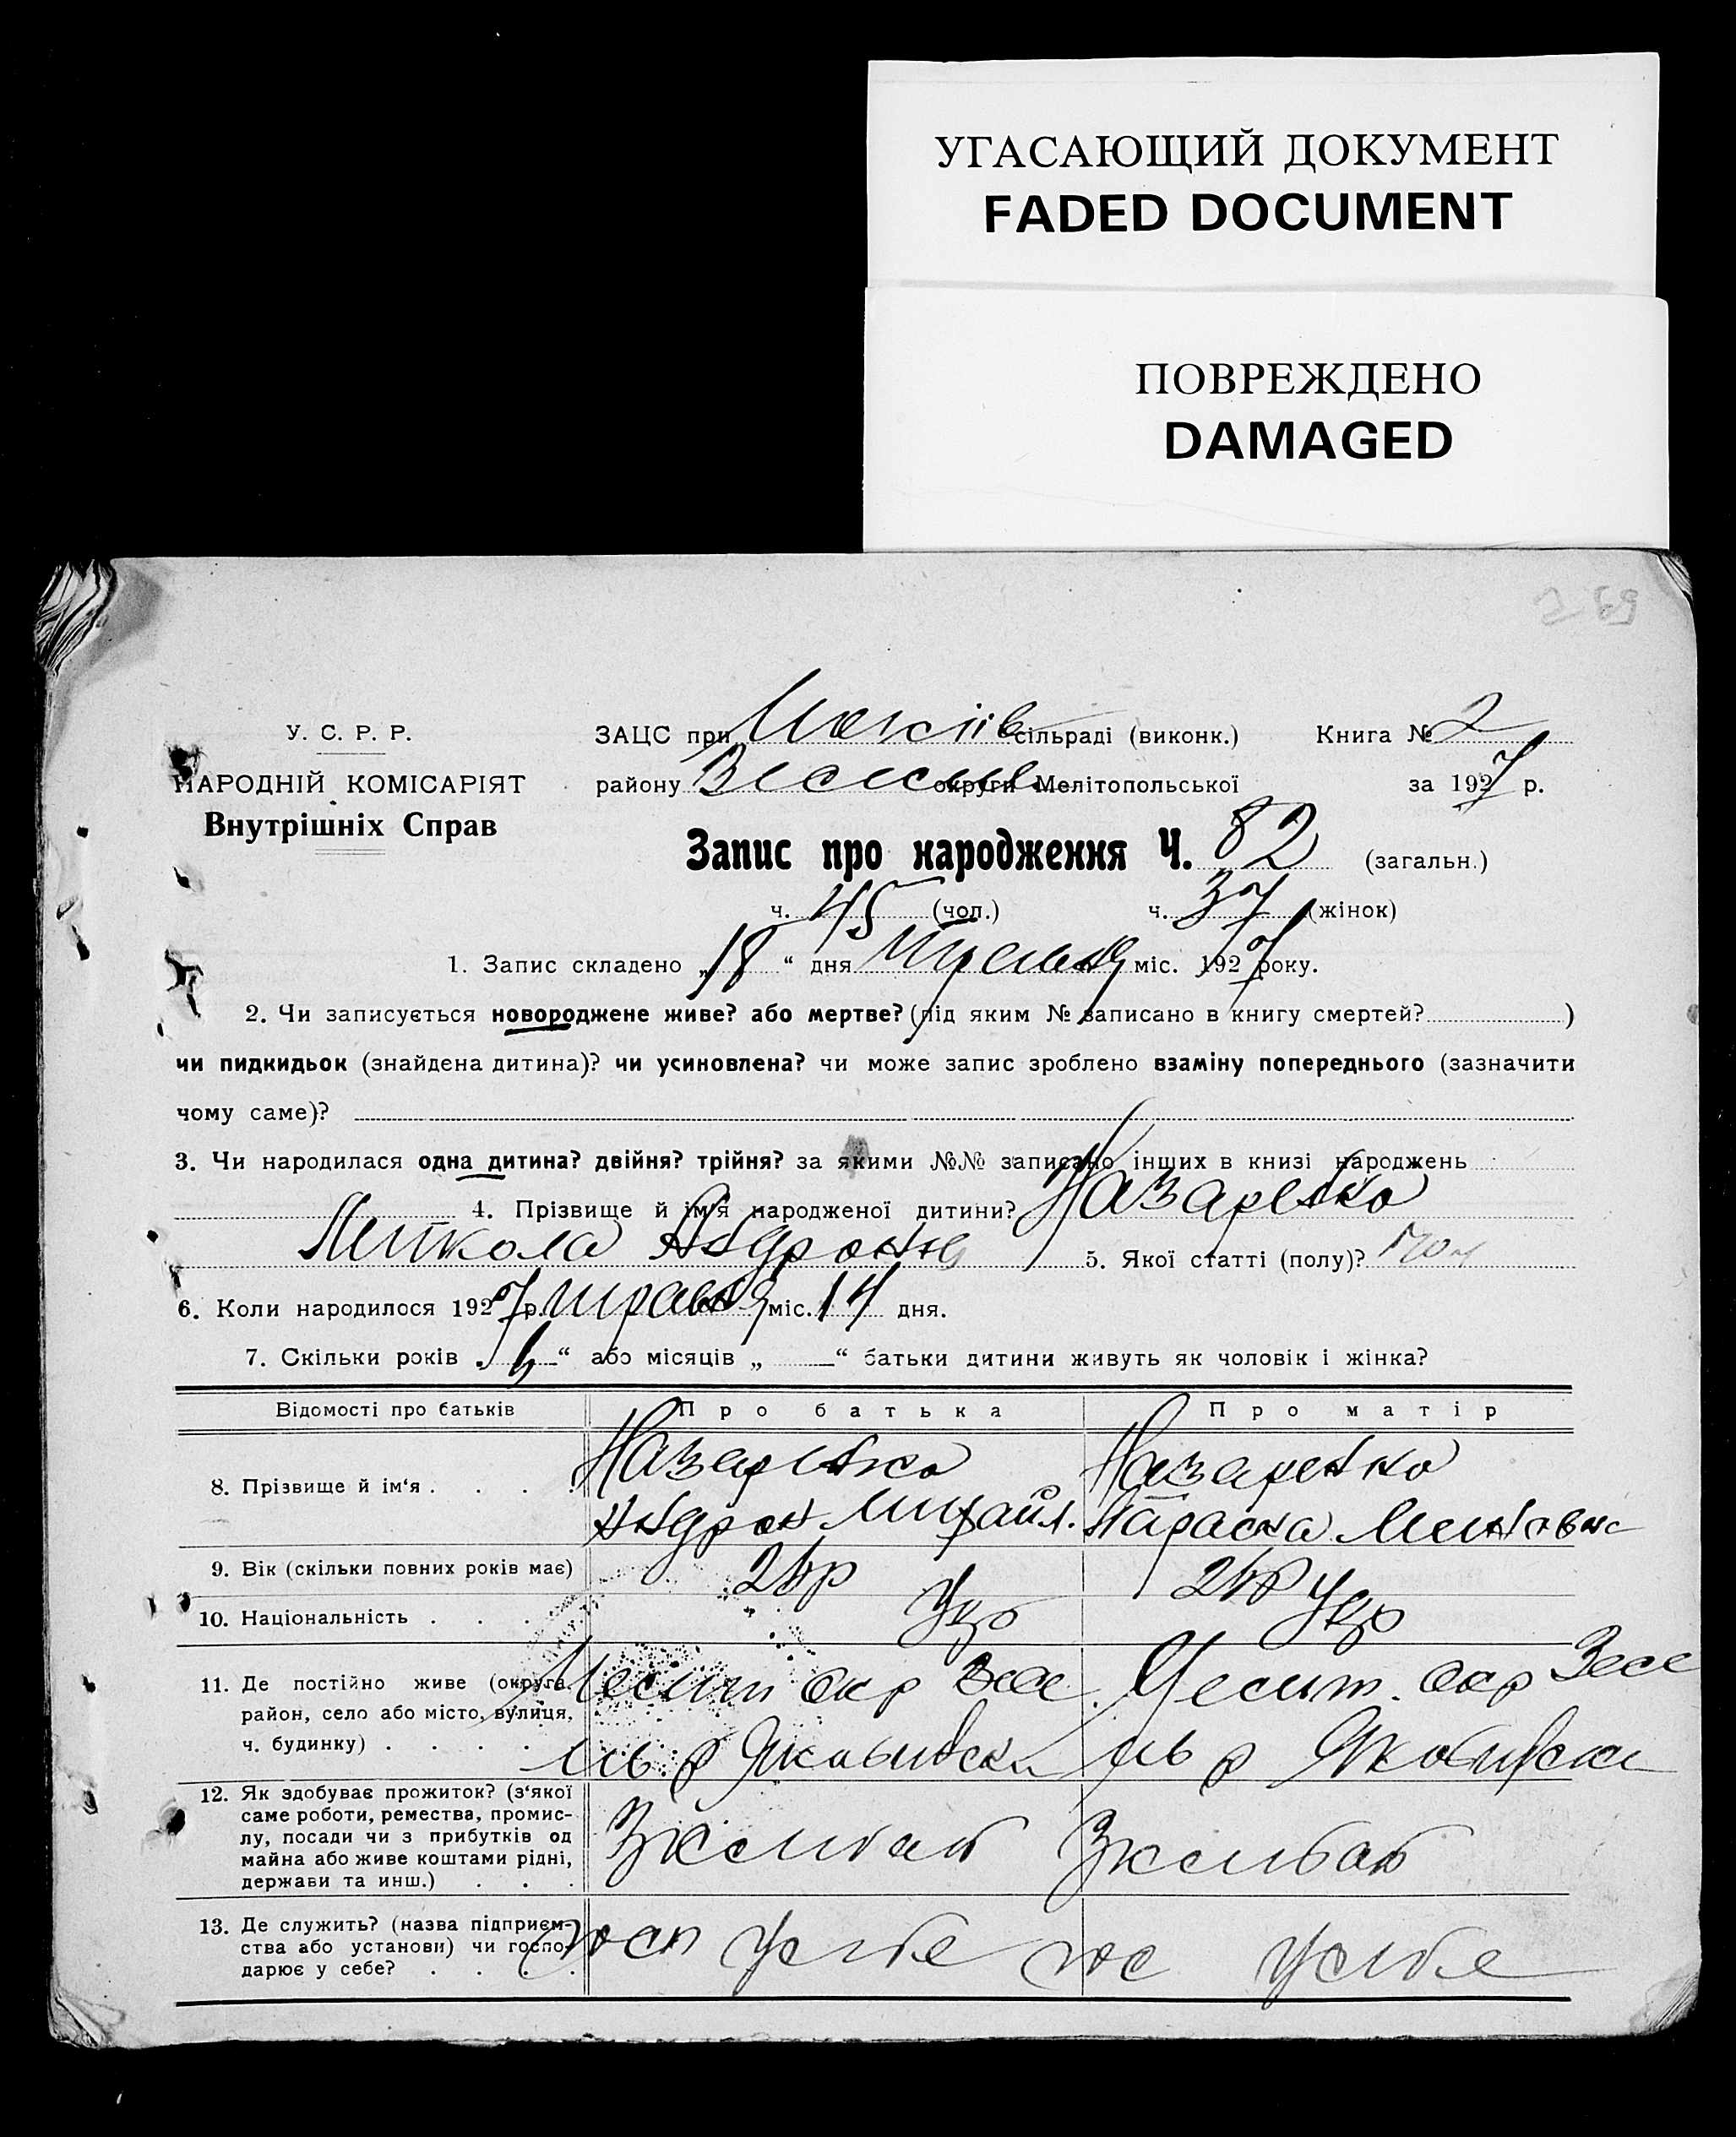 УГАСАЮЩИЙ ДОКУМЕНТ
FADED DOCUMENT
ПОВРЕЖДЕНО
DAMAGED
269
У. С. Р. Р.
НАРОДНІЙ КОМІСАРІЯТ
Внутрішніх Справ
ЗАЦС при сільраді (виконк.) Книга № 2
району округи Мелітопольської за 1927 р.
Запис про народження Ч. 82 (загальн.)
ч. 45 (чол.) ч. 37 (жінок)
1. Запис складено „18“ дня Травня міс. 1927 року.
2. Чи записується новороджене живе? або мертве? (під яким № записано в книгу смертей? )
чи пидкидьок (знайдена дитина)? чи усиновлена? чи може запис зроблено взаміну попереднього (зазначити
чому саме)?
3. Чи народилася одна дитина? двійня? трійня? за якими №№ записано інших в книзі народжень
4. Прізвище й ім'я народженої дитини? Назаренко
Микола Андронів 5. Якої статті (полу)? чол
6. Коли народилося 1927 р. травня міс. 14 дня.
7. Скільки років „ “ або місяців „ “ батьки дитини живуть як чоловік і жінка?
Відомості про батьків Про батька Про матір
8. Прізвище й ім‘я . . . . Назаренко Назаренко
Андрон Михайл. Параска
9. Вік (скільки повних років має)
10. Національність . . . . Укр Укр
11. Де постійно живе (округа, Меліт окр Весе Меліт. окр Весе
район, село або місто, вулиця,
ч. будинку) . . . . ль р ль р
12. Як здобуває прожиток? (з‘якої
саме роботи, ремества, промис-
лу, посади чи з прибутків од
майна або живе коштами рідні,
держави та инш.) . . .
13. Де служить? (назва підприєм-
ства або установи) чи госпо-
дарює у себе? . . . . госп у себе гос у себе